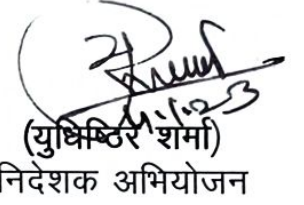 (युधिष्ठिर शर्मा)
निदेशक अभियोजन